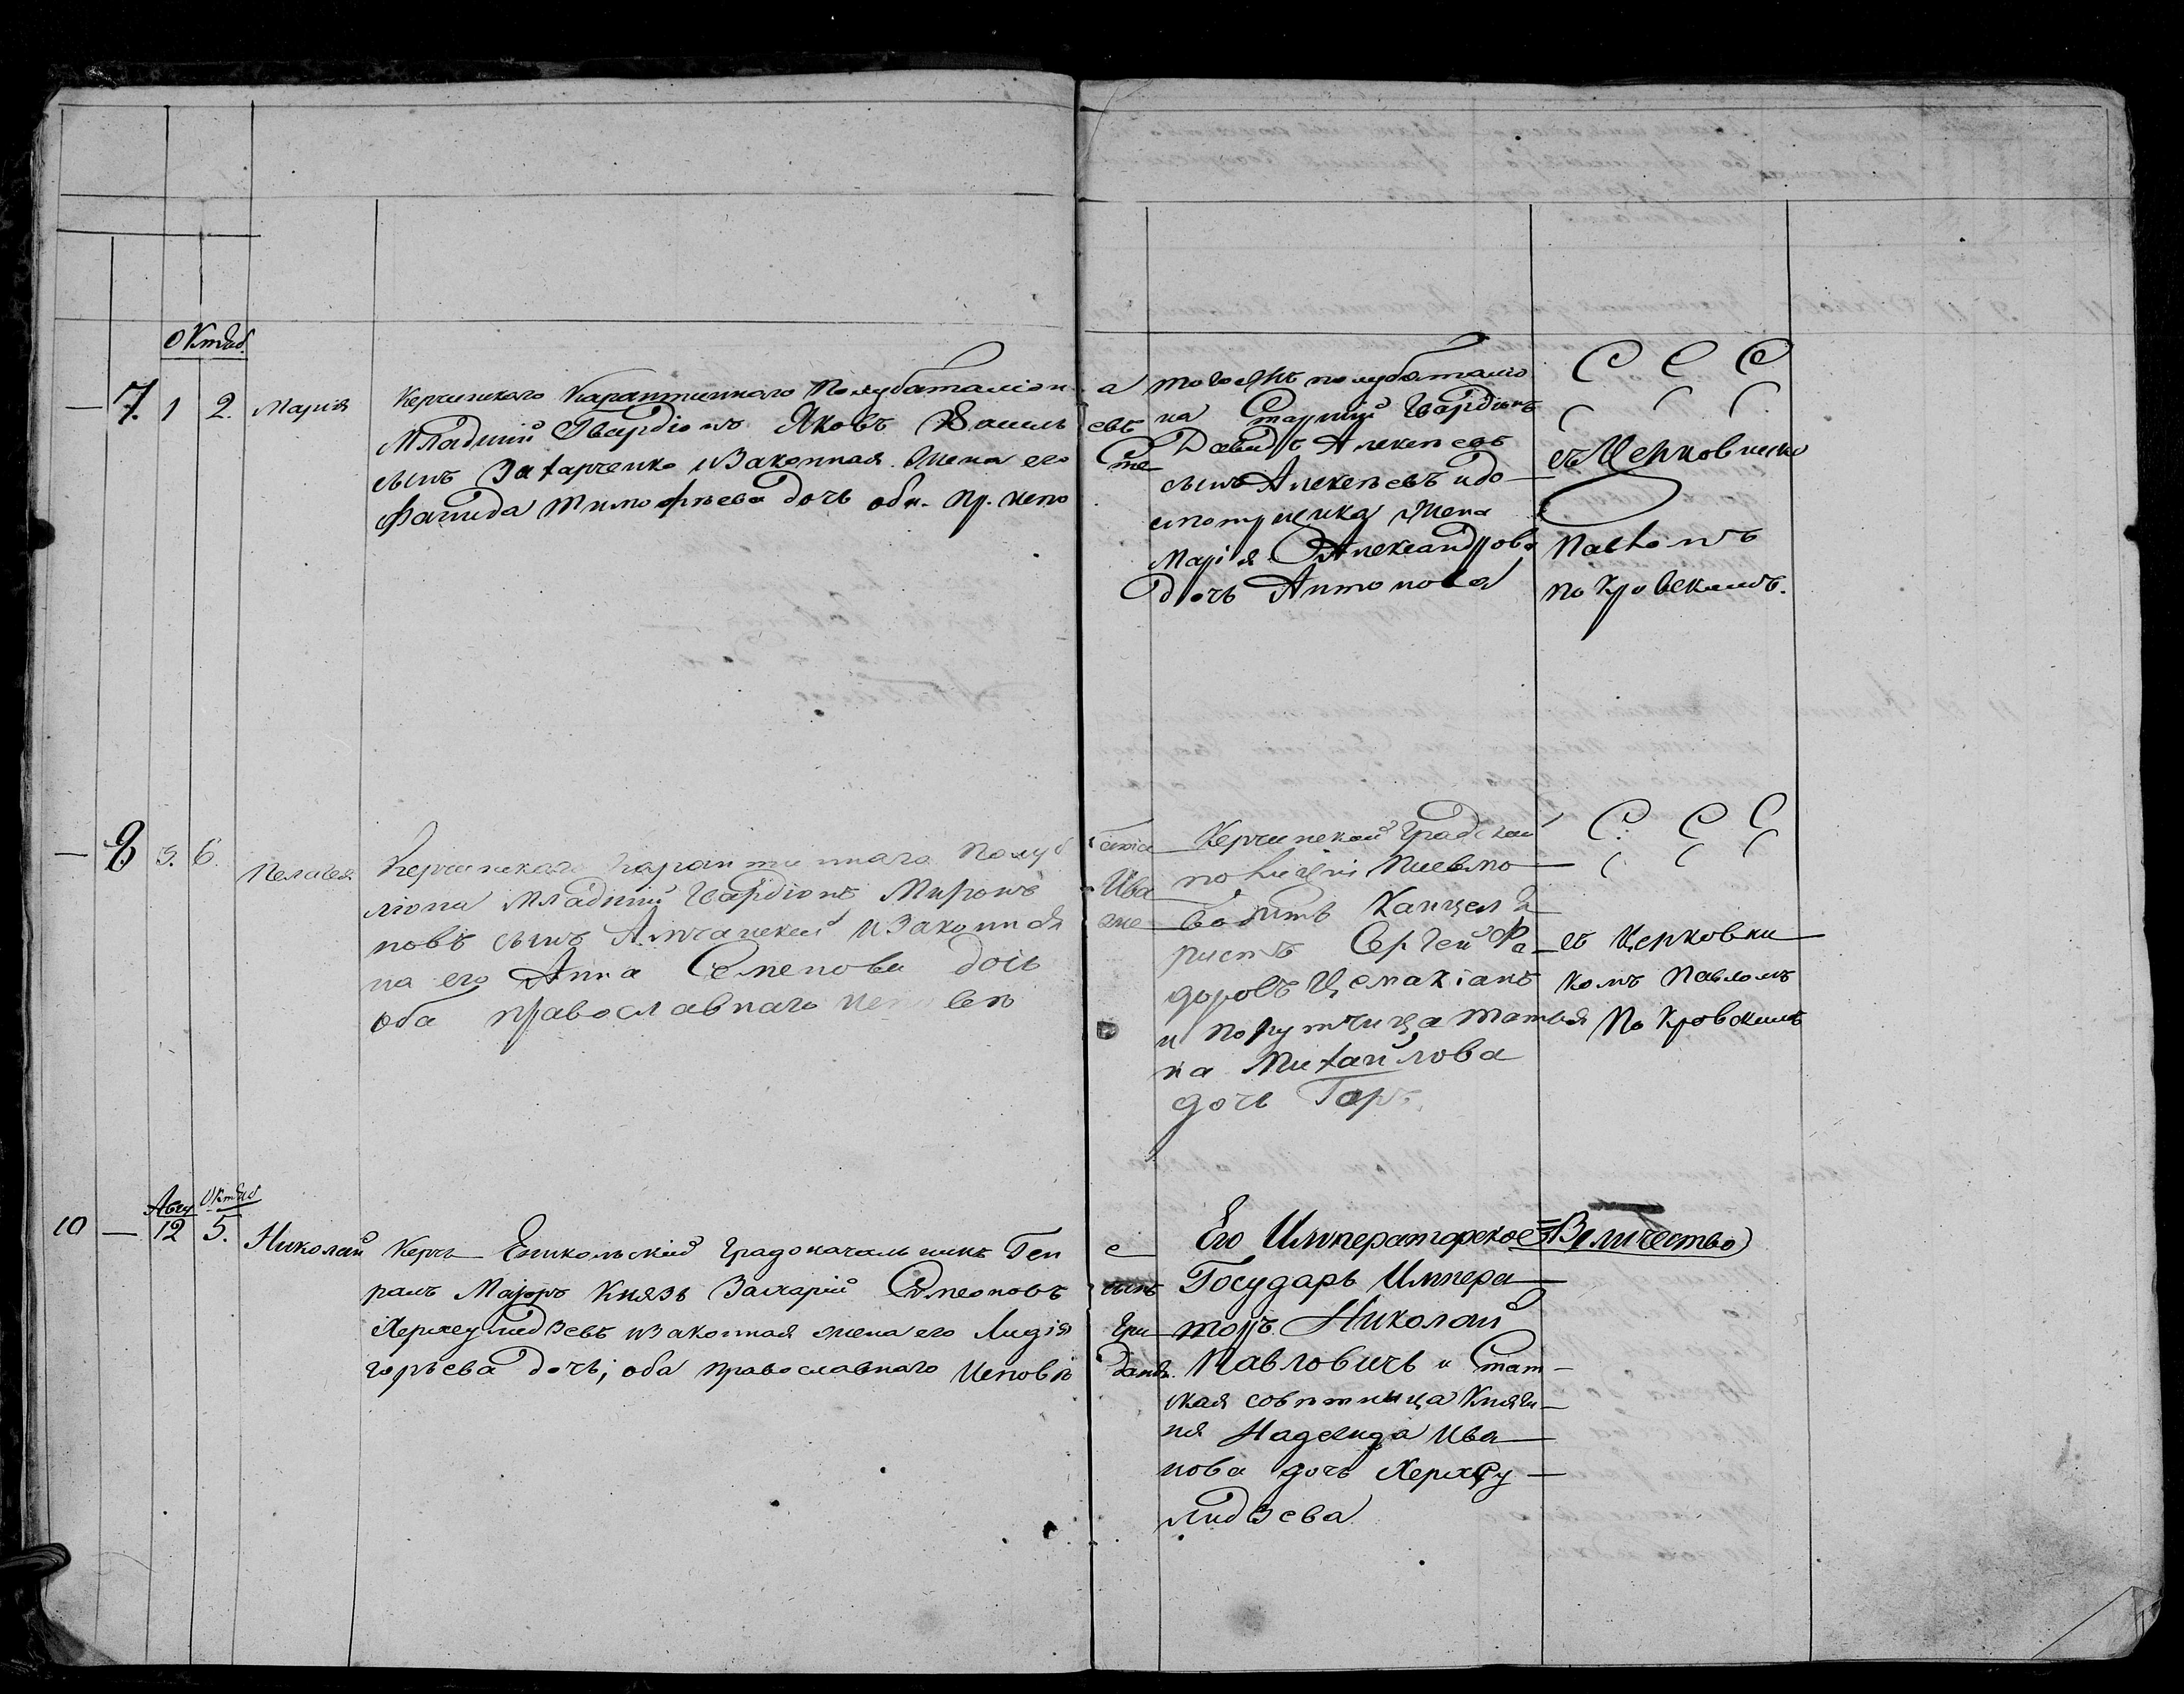 Октяб.
7. 1 2. Марія
Керчинскаго Карантиннаго Полубаталіон а
Младшій Гвардіонъ Яковъ Василь евъ
сынъ Захарченко и Законная Жена его
Тимофѣева дочь оба. пр. испо
тогоже полубаталіо
на Старшій Гвардіонъ
Давидъ Алексѣевъ
сынъ Алексѣевъ и до
Жена
Марія Александрова
дочь Антонова
С С С
съ Церковнико
Павломъ
Покровскимъ.
8. 3. 6. Пелагея
Керчинскаго Карантиннаго Полуб таліо
ліона Младшій Гвардіонъ Миронъ Ива
новъ сынъ и Законная же
на его Анна Семенова дочь
оба православнаго
Керчинской Градской
полиціи Письмо
водитъ Канцеля
ристъ Сергей Фе
доровъ
и Порутчица Татья
на Михайлова
дочь
С: С С
съ Церковни
комъ Павломъ
Покровскимъ
Авгу Октяб
10 — 12 5. Николай
Керчь Еникольскій Градоначальникъ Ген е
ралъ Маіоръ Князь Захарій Семеоновъ сынъ
Херхеулидзевъ и законная жена его Лидія Гри
горьева дочь; оба православнаго Исповѣ данія.
Его Императорское Величество
Государь Импера
торъ Николай
Павловичъ и Стат
ская совѣтница Княги
ня Надежда Ива
нова дочь Херхеу
лидзева